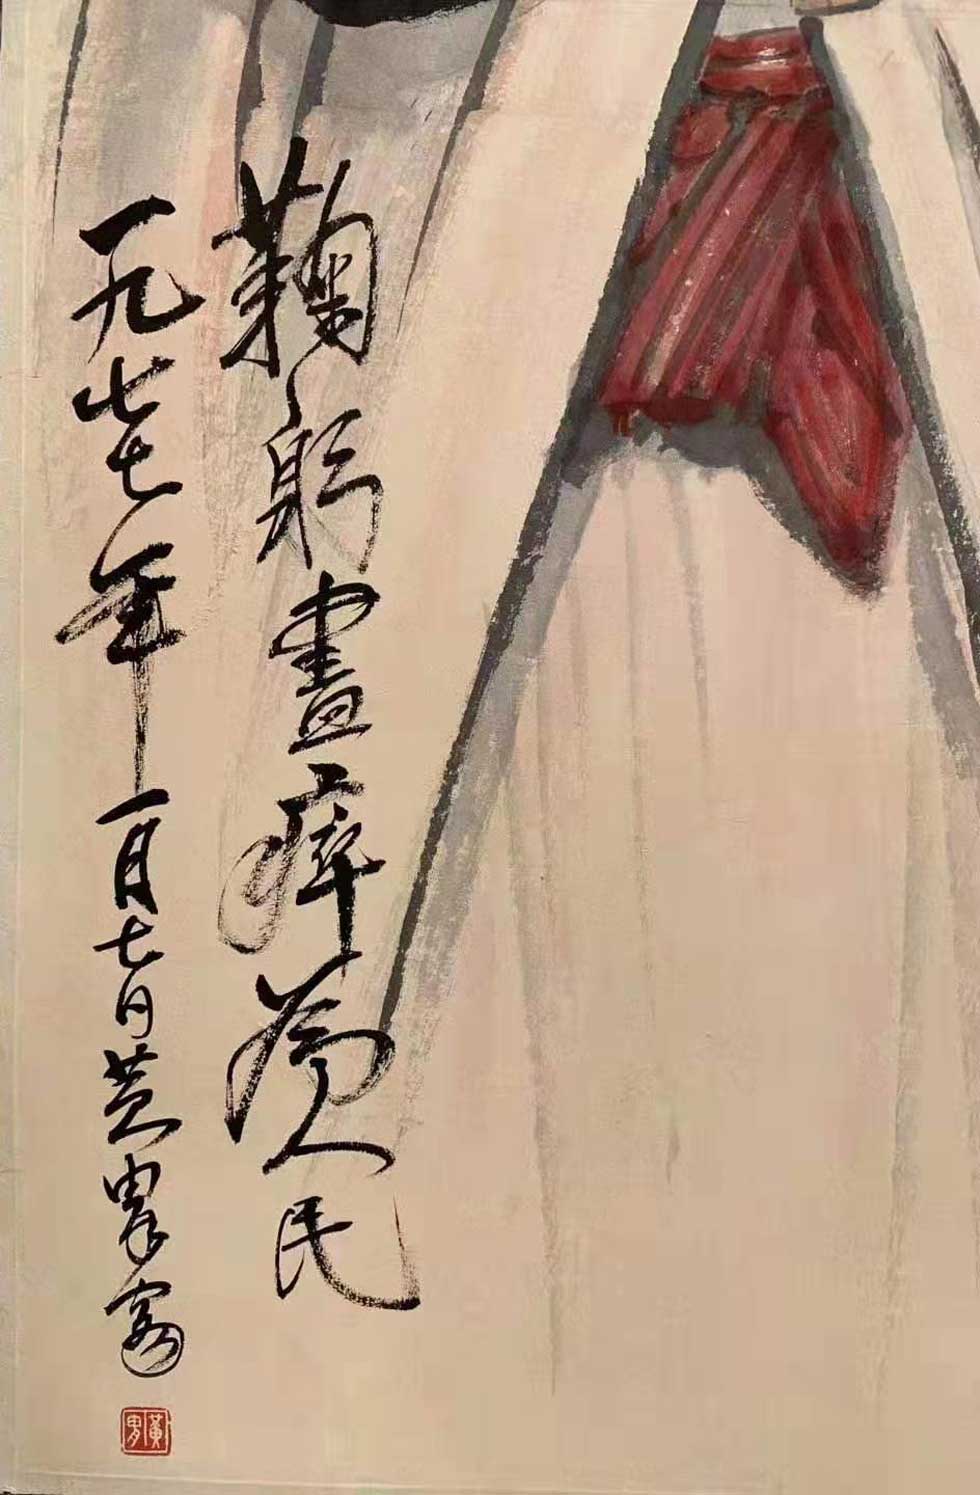 鞠躬盡瘁為人民
一九七七年一月七日黄胄寫
黄胄